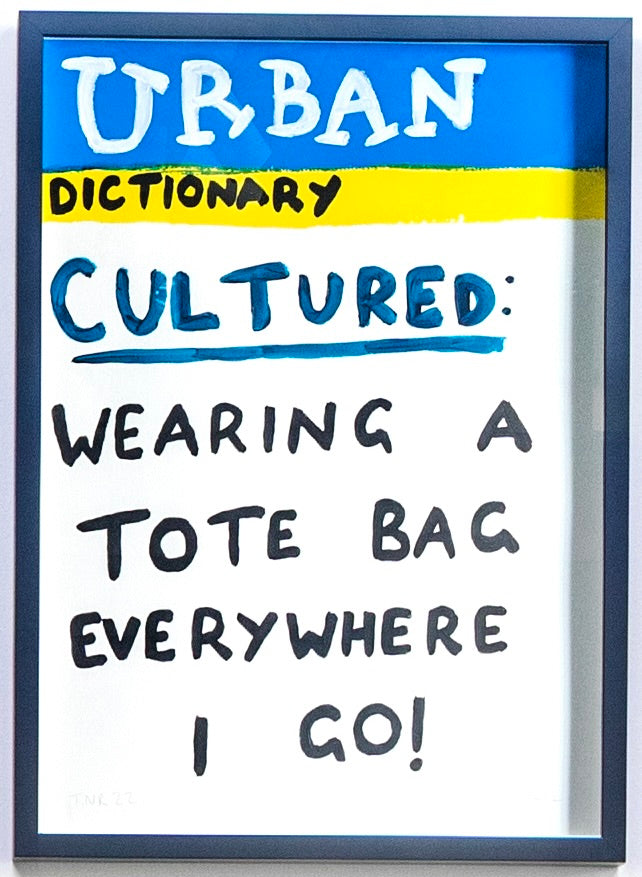 URBAN
DICTIONARY
CULTURED:
WEARING A
TOTE BAG
EVERYWHERE
I GO!